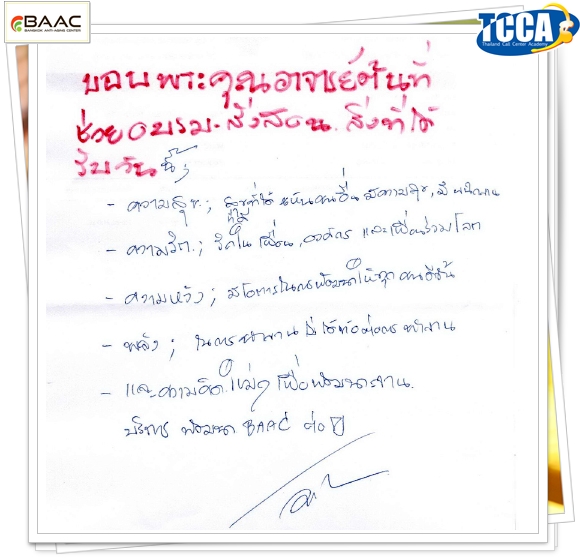 BAAC
BANGKOK ANTI-AGING CENTER
TCCA
Thailand Call Center Academy
ขอบพระคุณอาจารย์ต้นที่
ช่วยอบรม-สั่งสอน. สิ่งที่ได้
รับวันนี้;
- ความสุข.; สุขที่ได้เห็นคนอื่นมีความสุข,
ที่มี
- ความรัก.; รักในเพื่อน, องค์กร และเพื่อนร่วมโลก
- ความหวัง; มีโอกาสในการพัฒนาให้ทุกคนดีขึ้น
- พลัง; ในการทำงาน ไม่ได้ท้อต่อการทำงาน
- และความคิดใหม่ๆ เพื่อพัฒนางาน.
บริการ พัฒนา BAAC ต่อไป